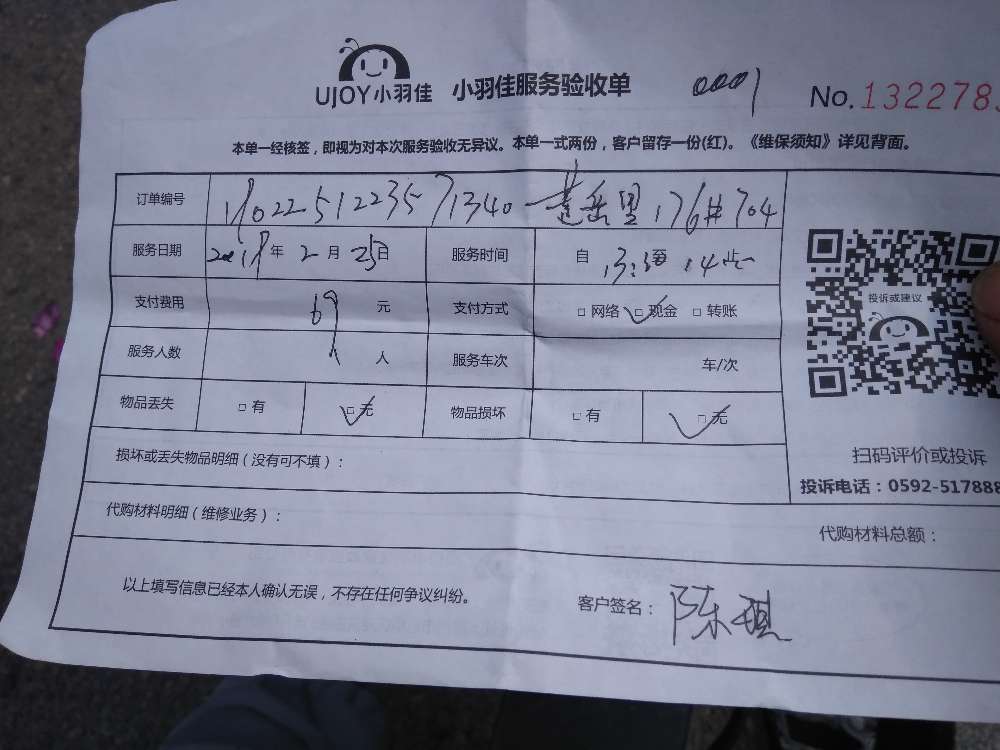 UJOY小羽佳 小羽佳服务验收单 0001 No.1322783
本单一经核签，即视为对本次服务验收无异议。本单一式两份，客户留存一份(红)。《维保须知》详见背面。
订单编号 1902251223571340 莲岳里176#704
服务日期 2019年2月25日 服务时间 自13:30至14止
支付费用 69 元 支付方式 □网络 □现金 □转账
服务人数 1 人 服务车次 车/次
物品丢失 □有 □无 物品损坏 □有 □无
投诉或建议
扫码评价或投诉
投诉电话：0592-517888
损坏或丢失物品明细（没有可不填）：
代购材料明细（维修业务）： 代购材料总额：
以上填写信息已经本人确认无误，不存在任何争议纠纷。 客户签名：陈琪